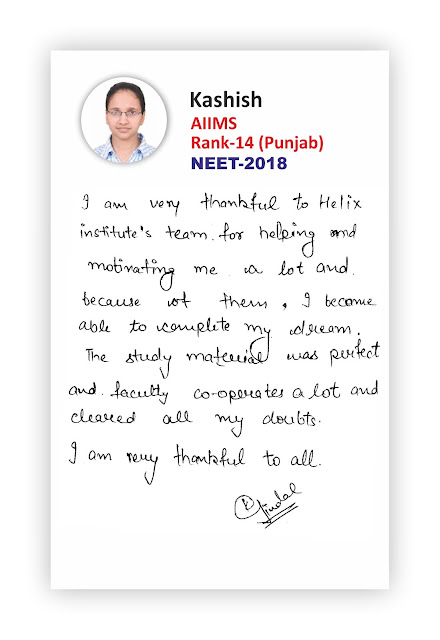 Kashish
AIIMS
Rank-14 (Punjab)
NEET-2018
I am very thankful to Helix
institute's team for helping and
motivating me a lot and.
because of them, I become
able to complete my dream.
The study material was perfect
and faculty co-operates a lot and
cleared all my doubts.
I am very thankful to all.
K Jindal